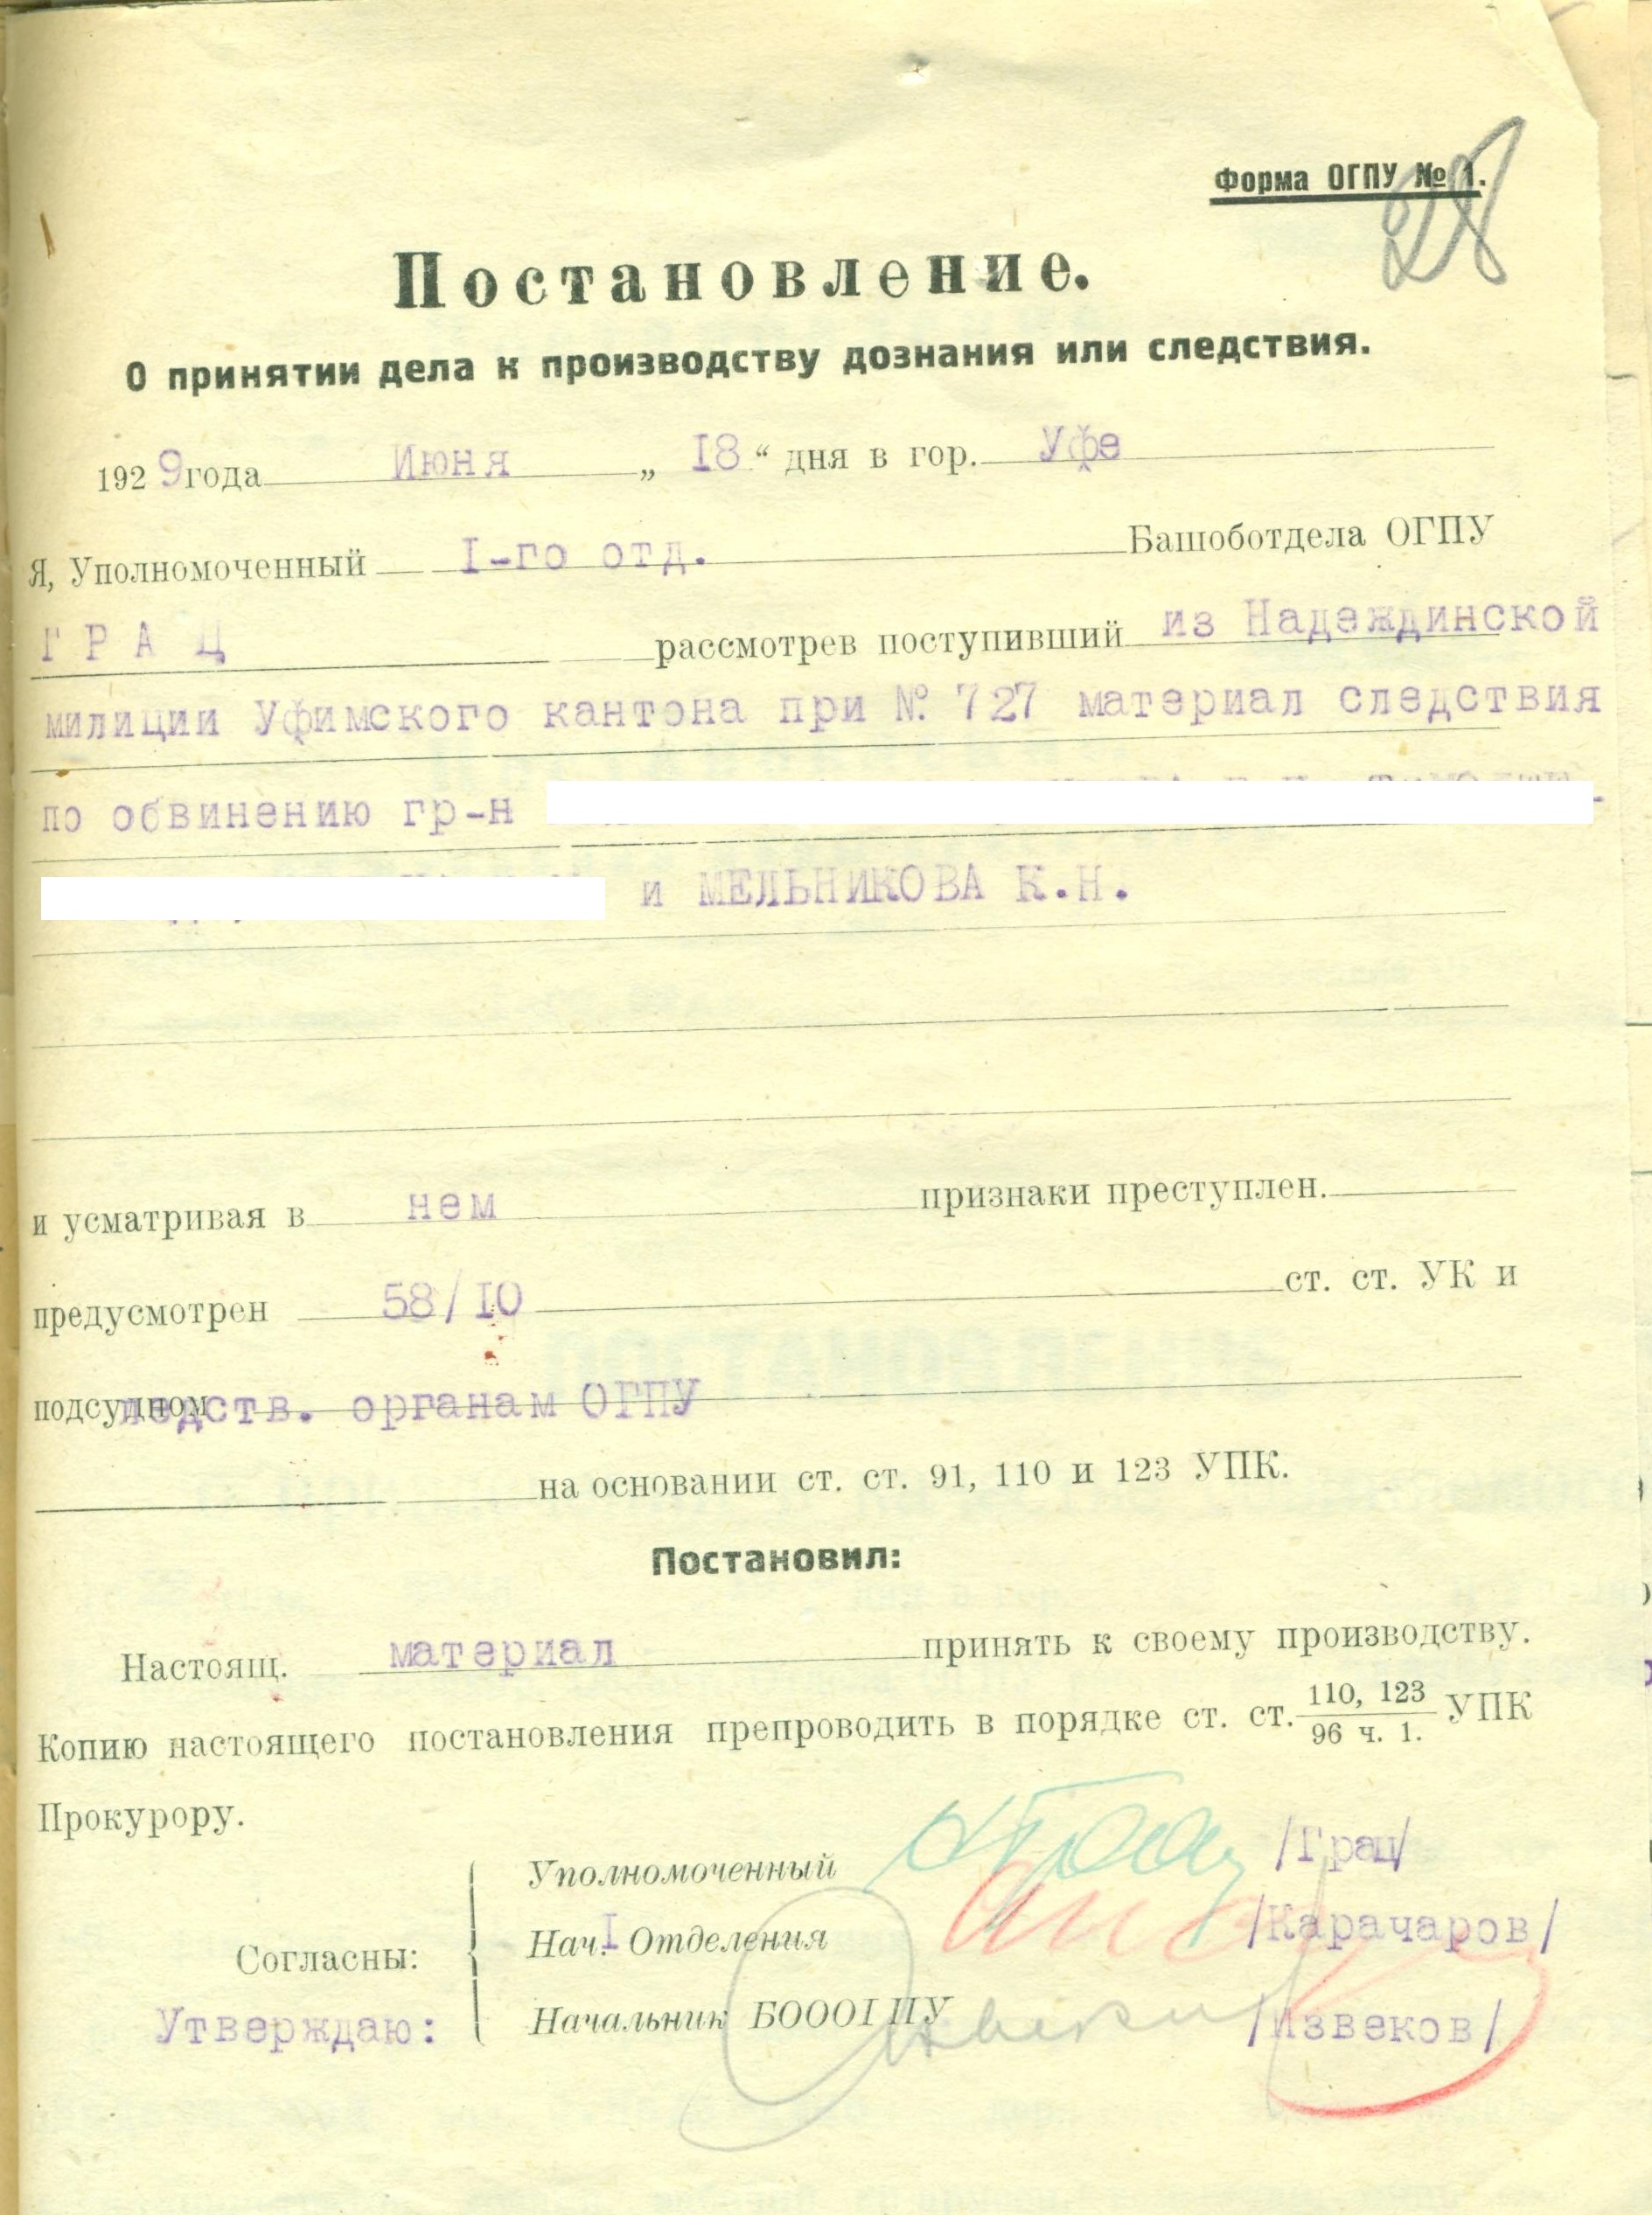 Форма ОГПУ № 1.
28
Постановление.
О принятии дела к производству дознания или следствия.
1929 года Июня „ 18 “ дня в гор. Уфе
Я, Уполномоченный I-го отд. Башоботдела ОГПУ
ГРАЦ рассмотрев поступивший из Надеждинской
милиции Уфимского кантона при № 727 материал следствия
по обвинению гр-н
и МЕЛЬНИКОВА К.Н.
и усматривая в нем признаки преступлен.
предусмотрен 58/10 ст. ст. УК и
подсудном ледств. органам ОГПУ
на основании ст. ст. 91, 110 и 123 УПК.
Постановил:
Настоящ. материал принять к своему производству.
Копию настоящего постановления препроводить в порядке ст. ст. 110, 123 / 96 ч. 1. УПК
Прокурору.
Уполномоченный /Грац/
Согласны: Нач. I Отделения /Карачаров/
Утверждаю: Начальник БОООГПУ /Извеков/